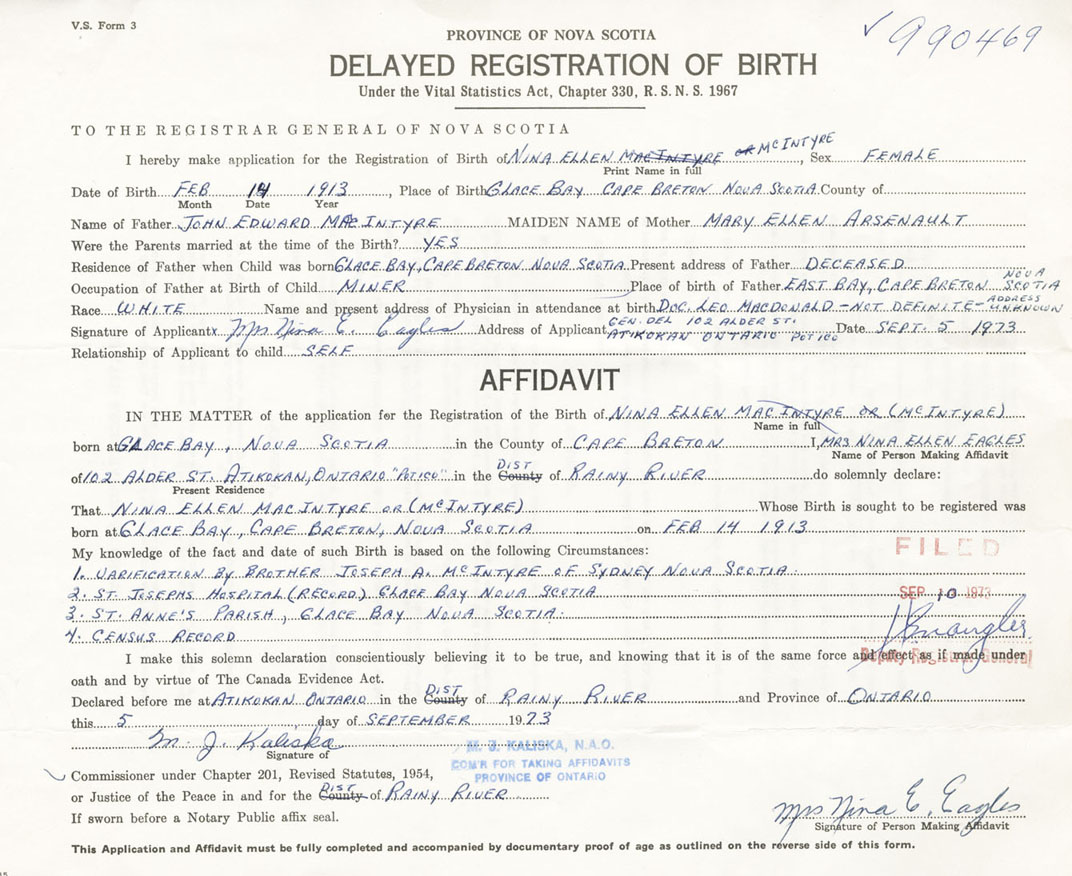 V.S. Form 3
✓ 990469
PROVINCE OF NOVA SCOTIA
DELAYED REGISTRATION OF BIRTH
Under the Vital Statistics Act, Chapter 330, R.S.N.S. 1967
TO THE REGISTRAR GENERAL OF NOVA SCOTIA
I hereby make application for the Registration of Birth of NINA ELLEN MACINTYRE OR MCINTYRE, Sex FEMALE
Print Name in full
Date of Birth FEB 14 1913, Place of Birth GLACE BAY CAPE BRETON NOVA SCOTIA. County of
Month Date Year
Name of Father JOHN EDWARD MACINTYRE MAIDEN NAME of Mother MARY ELLEN ARSENAULT
Were the Parents married at the time of the Birth? YES
Residence of Father when Child was born GLACE BAY, CAPE BRETON NOVA SCOTIA. Present address of Father DECEASED
Occupation of Father at Birth of Child MINER Place of birth of Father EAST BAY, CAPE BRETON NOVA SCOTIA
Race WHITE Name and present address of Physician in attendance at birth DOC. LEO MACDONALD - NOT DEFINITE - ADDRESS UNKNOWN
Signature of Applicant x Mrs Nina E. Eagles Address of Applicant GEN. DEL 102 ALDER ST. ATIKOKAN ONTARIO POT1C0 Date SEPT. 5 1973
Relationship of Applicant to child SELF
AFFIDAVIT
IN THE MATTER of the application for the Registration of the Birth of NINA ELLEN MACINTYRE OR (MCINTYRE)
Name in full
born at GLACE BAY, NOVA SCOTIA in the County of CAPE BRETON I, MRS NINA ELLEN EAGLES
Name of Person Making Affidavit
of 102 ALDER ST. ATIKOKAN, ONTARIO "POT1C0" in the County DIST of RAINY RIVER do solemnly declare:
Present Residence
That NINA ELLEN MACINTYRE OR (MCINTYRE) Whose Birth is sought to be registered was
born at GLACE BAY, CAPE BRETON, NOVA SCOTIA on FEB 14 1913
My knowledge of the fact and date of such Birth is based on the following Circumstances:
FILED
1. VARIFICATION BY BROTHER JOSEPH A. MCINTYRE OF SYDNEY NOVA SCOTIA.
2. ST. JOSEPHS HOSPITAL (RECORD) GLACE BAY NOVA SCOTIA
SEP 10 1973
3. ST. ANNE'S PARISH, GLACE BAY NOVA SCOTIA.
4. CENSUS RECORD
I make this solemn declaration conscientiously believing it to be true, and knowing that it is of the same force and effect as if made under
Deputy Registrar General
oath and by virtue of The Canada Evidence Act.
Declared before me at ATIKOKAN ONTARIO in the County DIST of RAINY RIVER and Province of ONTARIO
this 5 day of SEPTEMBER 1973
M. J. Kaliska
Signature of
M. J. KALISKA, N.A.O.
COM'R FOR TAKING AFFIDAVITS
PROVINCE OF ONTARIO
Commissioner under Chapter 201, Revised Statutes, 1954,
or Justice of the Peace in and for the County DIST of RAINY RIVER
If sworn before a Notary Public affix seal.
Mrs Nina E. Eagles
Signature of Person Making Affidavit
This Application and Affidavit must be fully completed and accompanied by documentary proof of age as outlined on the reverse side of this form.